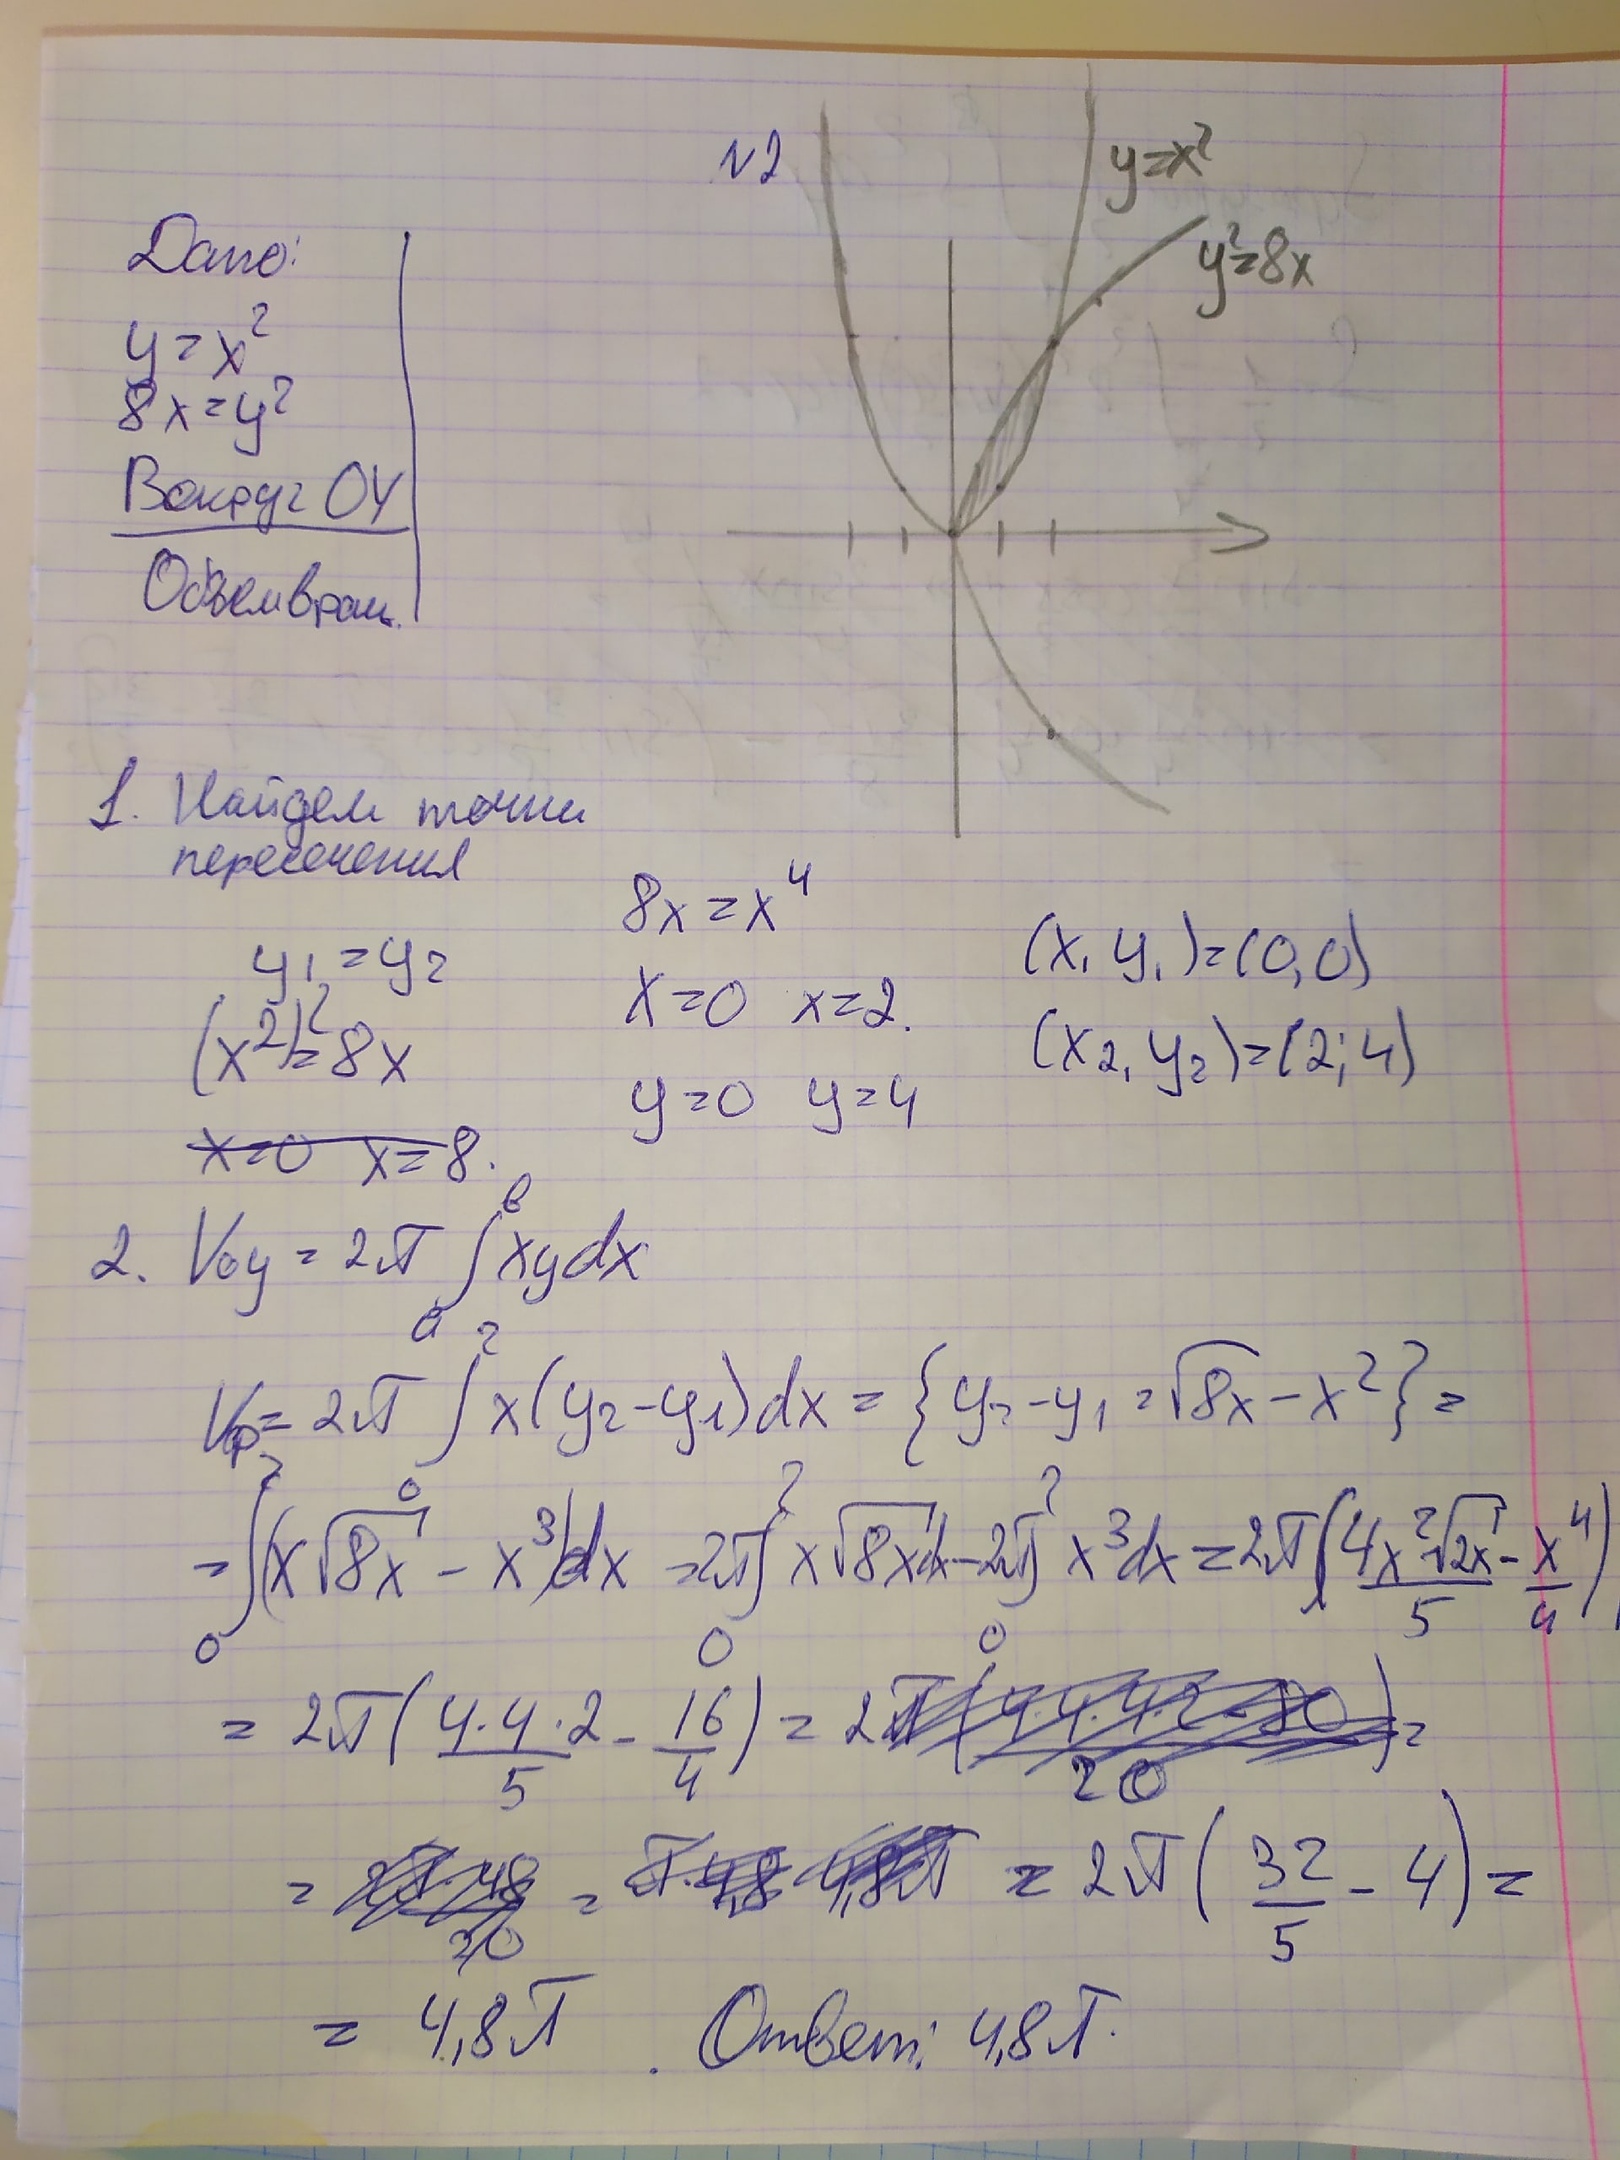 N2
y=x²
y²=8x
Дано:
y=x²
8x=y²
Вокруг OY
Объем вращ.
1. Найдем точки
пересечения
y₁=y₂
(x²)²=8x
x=0 x=8.
8x=x⁴
x=0 x=2.
y=0 y=4
(x₁ y₁)=(0,0)
(x₂, y₂)=(2;4)
2. Voy = 2π ∫ₐᵇ xydx
Vφ= 2π ∫₀² x(y₂-y₁)dx = {y₂-y₁=√8x-x²}=
=∫₀²(x√8x - x³)dx =2π∫₀² x√8x dx-2π∫₀² x³dx=2π(4x²√2x/5 - x⁴/4)|
= 2π(4·4·2/5 - 16/4) = 2π(4·4·4·2-80/20)=
= 2π·48/20 = π·4,8 4,8π = 2π(32/5 - 4)=
= 4,8π. Ответ: 4,8π.